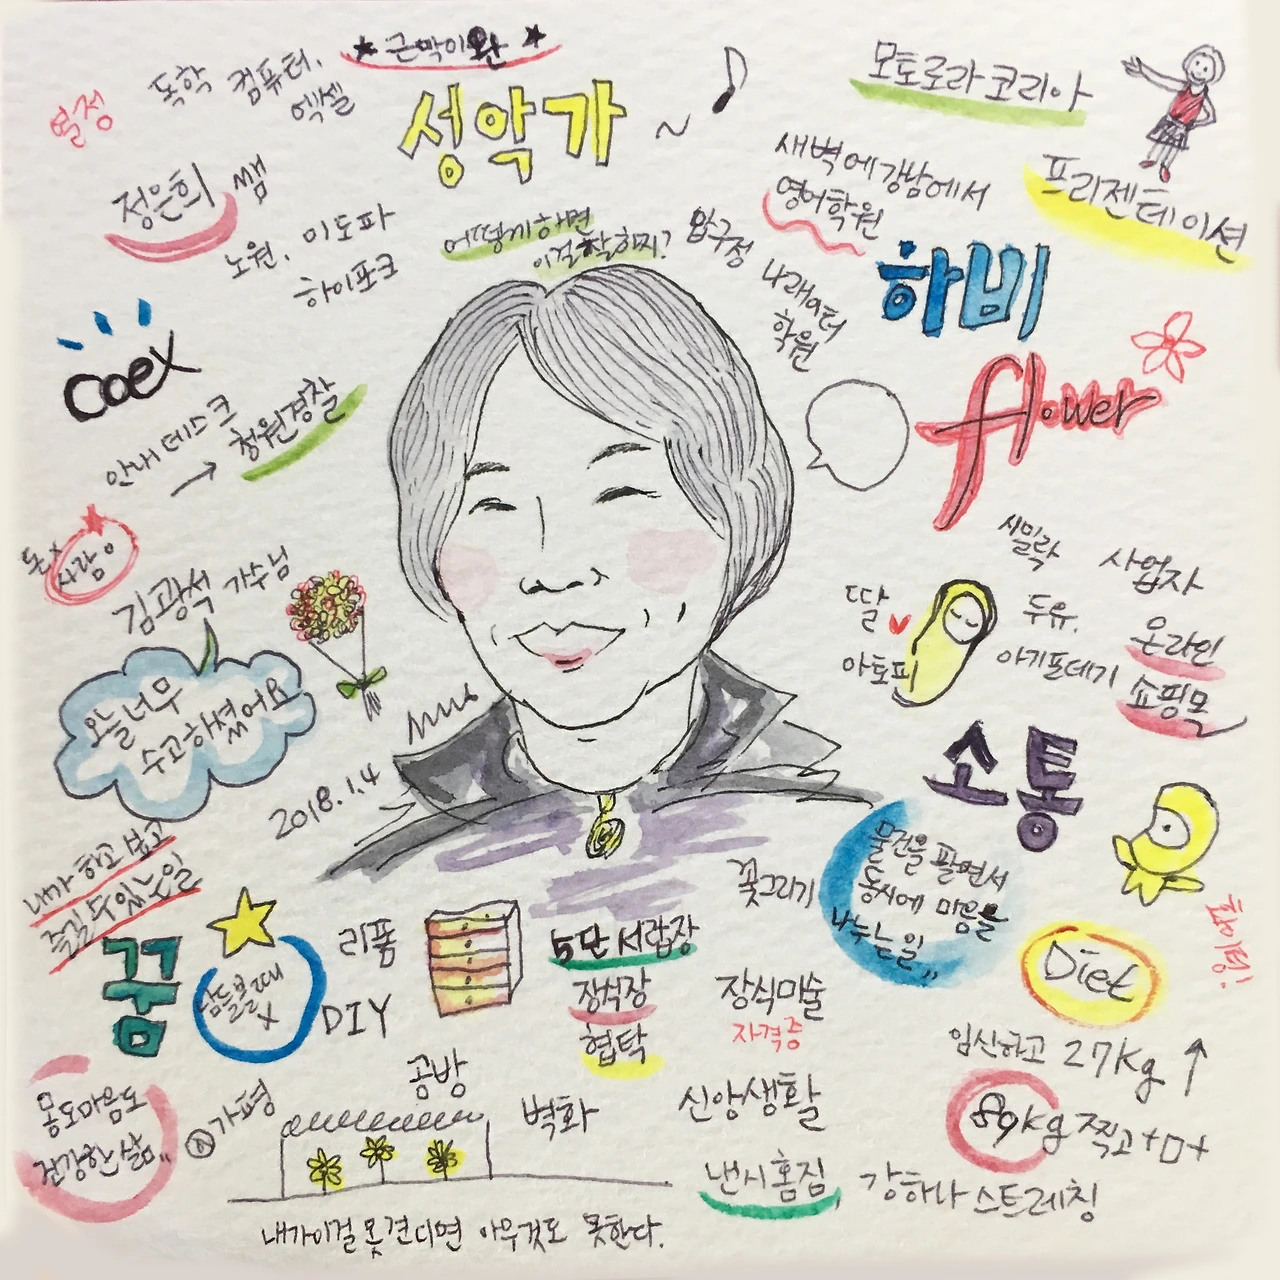 ★ 근막이완 ★
열정
독학 컴퓨터,
엑셀
성악가 ~
모토로라 코리아
정은희 쌤
새벽에 강남에서
영어학원
프리젠테이션
노원, 미도파
하이포크
어떻게하면
이걸 잘하지?
압구정
나래이터
학원
하비
flower
coex
안내 데스크
→ 청원경찰
돈x
사람o
김광석 가수님
오늘너무
수고하셨어요
2018.1.4
시밀락
사업자
온라인
쇼핑몰
딸
아토피
두유,
아기포데기
소통
물건을 팔면서
동시에 마음을
나누는일"
내가 하고 보고
즐길 수 있는 일
꿈
남들볼때
x
리폼
DIY
5단 서랍장
장식장
협탁
꽃그리기
장식미술
자격증
Diet
임신하고 27kg ↑
89kg 찍고
몸도마음도
건강한 삶"
가평
공방
벽화
신앙생활
낸시홈짐, 강하나 스트레칭
내가이걸 못견디면 아무것도 못한다.